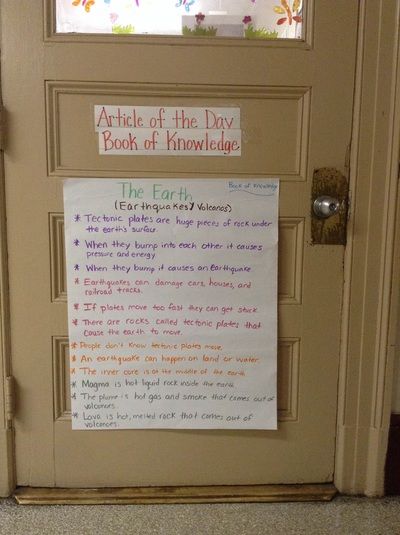 Article of the Day
Book of Knowledge
Book of Knowledge
The Earth
(Earthquakes/Volcanos)
* Tectonic plates are huge pieces of rock under
the earth's surface.
* When they bump into each other it causes
pressure and energy.
* When they bump it causes an earthquake
* Earthquakes can damage cars, houses, and
railroad tracks.
* If plates move too fast they can get stuck.
* There are rocks called tectonic plates that
cause the earth to move.
* People don't know tectonic plates move.
* An earthquake can happen on land or water.
* The inner core is at the middle of the earth
* Magma is hot liquid rock inside the earth
* The plume is hot gas and smoke that comes out of
volcanoes.
* Lava is hot, melted rock that comes out of
volcanoes.